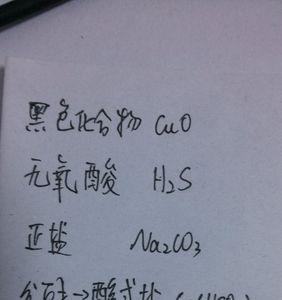 黑色化合物 CuO
无氧酸 H₂S
正盐 Na₂CO₃